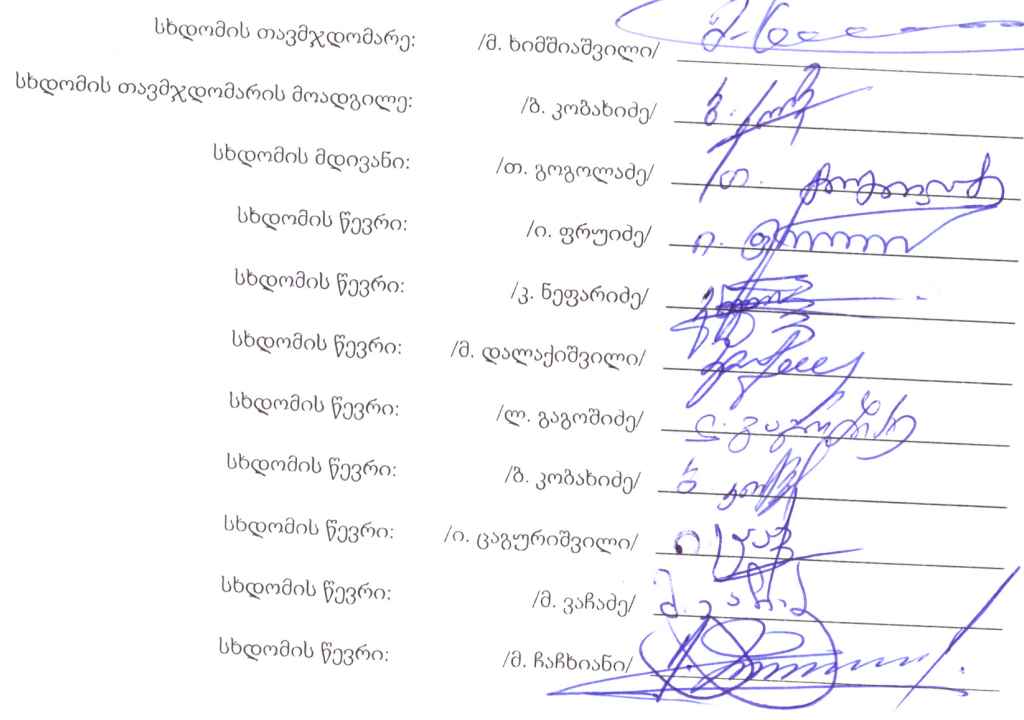 სხდომის თავმჯდომარე: /მ. ხიმშიაშვილი/
სხდომის თავმჯდომარის მოადგილე: /ბ. კობახიძე/
სხდომის მდივანი: /თ. გოგოლაძე/
სხდომის წევრი: /ი. ფრუიძე/
სხდომის წევრი: /კ. ნეფარიძე/
სხდომის წევრი: /მ. დალაქიშვილი/
სხდომის წევრი: /ლ. გაგოშიძე/
სხდომის წევრი: /ბ. კობახიძე/
სხდომის წევრი: /ი. ცაგურიშვილი/
სხდომის წევრი: /მ. ვაჩაძე/
სხდომის წევრი: /მ. ჩაჩხიანი/